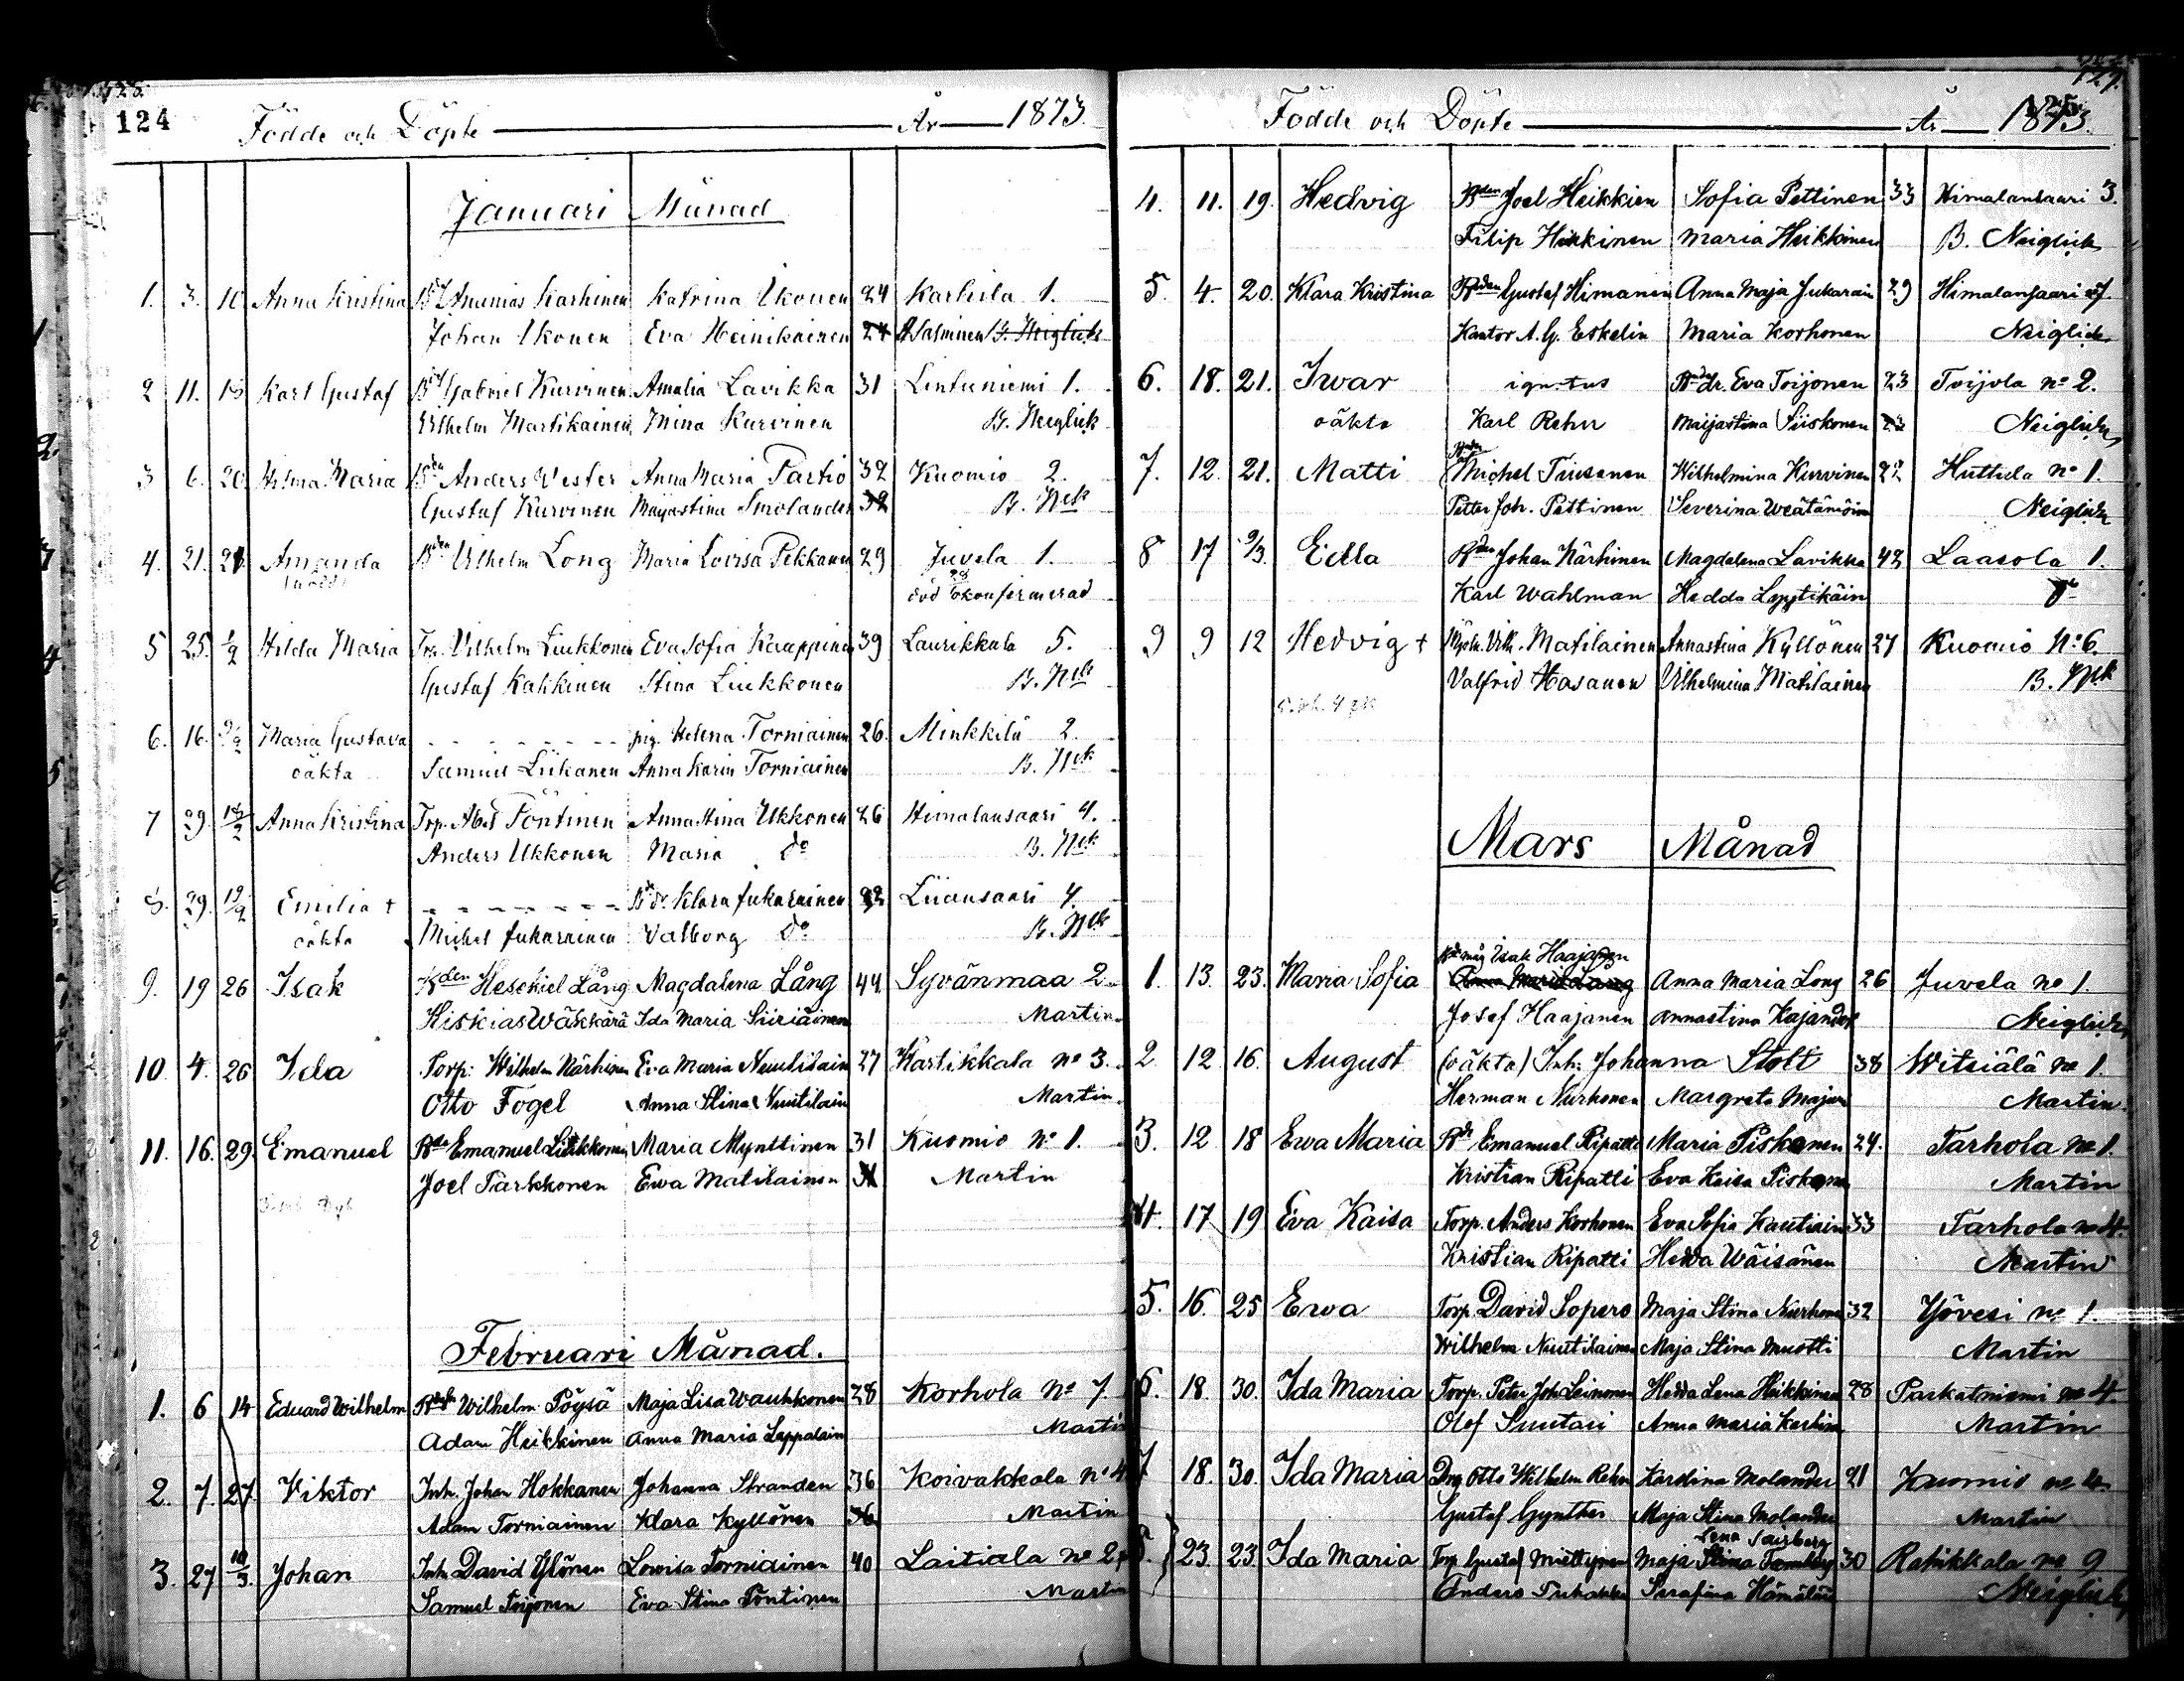 124
Födde och Döpte År 1873.
Januari Månad
1. 3. 10 Anna Kristina Ananias Karhinen Katrina Ukonen 24 Karhila 1.
Johan Ukonen Eva Heinikainen 24 A Salminen B. Neiglick
2 11. 13 Karl Gustaf Gabriel Kurvinen Amalia Lavikka 31 Lintuniemi 1.
Vilhelm Martikainen Mina Kurvinen B. Neiglick
3 6. 20. Hilma Maria Bden Anders Vester Anna Maria Partio 32 Kuomio 2.
Gustaf Kurvinen Maijastina Smolander 32 B. Nck
4. 21. 21. Amanda Bden Vilhelm Long Maria Lovisa Pekkanen 29 Juvela 1.
död okonfirmerad
5 25. 1/2 Hilda Maria Trp. Vilhelm Liukkonen Eva Sofia Kaappinen 39 Laurikkala 5.
Gustaf Kahkinen Stina Liukkonen B. Nck
6. 16. 9/2 Maria Gustava pig. Helena Torniainen 26. Minkkilä 2.
oäkta Samuel Liikanen Anna Karin Torniainen B. Nck
7 29. Anna Kristina Trp. Abel Pöntinen Anna Stina Ukkonen 26 Himalansaari 4.
Anders Ukkonen Maria do B. Nck
8. 29. Emilia † Klara Jukarainen 22 Liiansaari 4.
oäkta Michel Jukarainen Valborg do B. Nck
9. 19 26 Isak Bden Hesekiel Lång Magdalena Lång 44 Syvänmaa 2
Hiskias Wäkkärä Ida Maria Siiriäinen Martin
10. 4. 26 Ida Torp. Wilhelm Närhinen Eva Maria Nuutilain 27 Hartikkala no 3.
Otto Fogel Anna Stina Nuutilain Martin
11. 16. 29. Emanuel Bde Emanuel Liukkonen Maria Mynttinen 31 Kuomio No 1.
Joel Parkkonen Ewa Matilainen 31 Martin
Februari Månad.
1. 6 14 Eduard Wilhelm Bde Wilhelm Pöysä Maja Lisa Wauhkonen 28 Korhola No 7
Adam Heikkinen Anna Maria Leppälain Martin
2. 7. 27. Viktor Inh. Johan Hokkanen Johanna Stranden 36 Koivakkala no 4
Adam Torniainen Klara Kyllönen 36 Martin
3. 27 Johan Inh David Ylönen Lowisa Torniainen 40 Laitiala no 2
Samuel Toijonen Eva Stina Pöntinen Martin
Födde och Döpte År 1873.
4. 11. 19. Hedvig Bden Joel Heikkien Sofia Pettinen 33 Himalansaari 3.
Filip Heikkinen Maria Heikkinen B. Neiglick
5. 4. 20. Klara Kristina Bden Gustaf Himanen Anna Maja Jukarain 29 Himalansaari 7.
Kantor A. G. Eskelin Maria Korhonen Neiglick
6. 18. 21. Iwar Eva Toijonen 23 Toijola no 2.
oäkta Karl Rehn Maijastina Siiskonen 23 Neiglick
7. 12. 21. Matti Michel Tiusanen Wilhelmina Kurvinen 22 Huttula no 1.
Petter Joh. Pettinen Severina Weätämöin Neiglick
8 17 9/3. Edla Bden Johan Närhinen Magdalena Lavikka 42 Laasola 1.
Karl Wahlman Hedda Lyytikäin do
9 9 12 Hedvig † Vilh. Matilainen Annastina Kyllönen 27 Kuomio No 6.
Valfrid Hasanen Vilhelmina Matilainen B. Nck
Mars Månad
1. 13. 23. Maria Sofia Isak Haajanen Anna Maria Long 26 Juvela no 1.
Josef Haajanen Annastina Kajander Neiglick
2. 12. 16. August (oäkta) Inh: Johanna Stolt 38 Witsiälä no 1.
Herman Nurhonen Margreta Majur Martin
3. 12 18 Ewa Maria Bde Emanuel Ripatti Maria Piskonen 24. Tarhola no 1.
Kristian Ripatti Eva Kaisa Piskonen Martin
4. 17. 19 Eva Kaisa Torp. Anders Korhonen Eva Sofia Kautiain 33 Tarhola no 4.
Kristian Ripatti Hedda Wäisänen Martin
5. 16. 25 Ewa Torp. David Sopero Maja Stina Nurhonen 32 Yövesi no 1.
Wilhelm Nuutilainen Maja Stina Muotti Martin
6. 18. 30. Ida Maria Torp. Peter Joh Leinonen Hedda Lena Heikkinen 28 Parkatniemi no 4
Olof Suutari Anna Maria Karhin Martin
7 18. 30. Ida Maria Drg Otto Wilhelm Rehn Karolina Molander 21 Kuomio no 2.
Gustaf Gynther Maja Stina Molander Martin
Lena Sairberg
8. 23. 23. Ida Maria Torp Gustaf Miettynen Maja Stina 30 Rahikkala no 9
Anders Serafina Hämäläi Neiglick